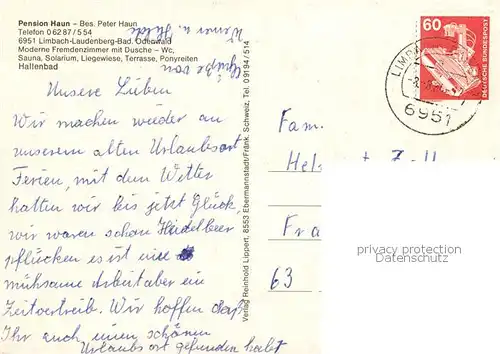 Pension Haun – Bes. Peter Haun
Telefon 0 62 87 / 5 54
6951 Limbach-Laudenberg-Bad. Odenwald
Moderne Fremdenzimmer mit Dusche – Wc,
Sauna, Solarium, Liegewiese, Terrasse, Ponyreiten
Hallenbad
Grüße von
Werner u. Hilde
Unsere Lieben
Wir machen wieder an
unserem alten Urlaubsort
Ferien, mit dem Wetter
hatten wir bis jetzt Glück,
wir waren schon Heidelbeer
pflücken es ist eine
mühsame Arbeit aber ein
Zeitvertreib. Wir hoffen daß
Ihr auch einen schönen
Urlaubsort gefunden habt
Verlag Reinhold Lippert, 8553 Ebermannstadt/Fränk. Schweiz, Tel. 0 91 94 / 514
60
DEUTSCHE BUNDESPOST
LIMB
6951
Fam.
Hel
Fra
63
privacy protection
AnsichtskartenCenter